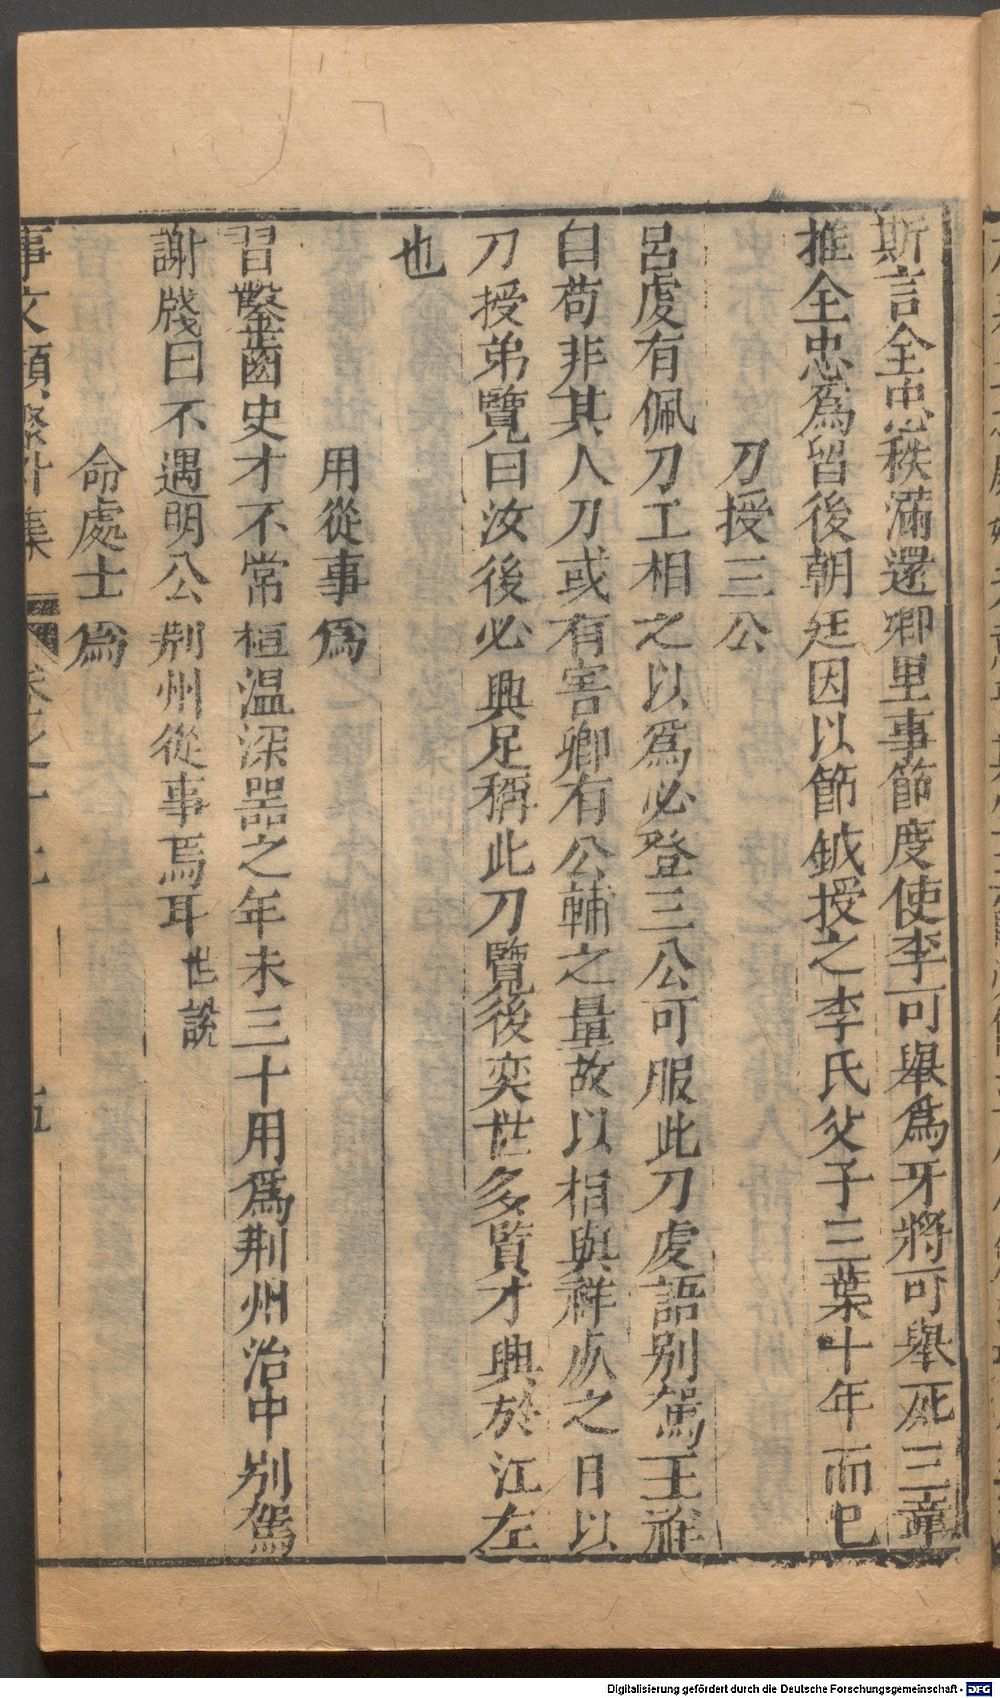 斯言全忠秩滿還卿里事節度使李可舉爲牙將可舉死三軍
推全忠爲留後朝廷因以節鉞授之李氏父子三葉十年而已
刀授三公
呂虔有佩刀工相之以爲必登三公可服此刀虔語別駕王祥
曰苟非其人刀或有害卿有公輔之量故以相與祥㡳之日以
刀授弟覽曰汝後必興足稱此刀覽後奕世多賢才興於江左
也
用從事爲
習鑿齒史才不常桓温深器之年未三十用爲荆州治中別駕
謝牋曰不遇明公荆州從事焉耳世說
命處士爲
事文類聚外集
卷之十
五
Digitalisierung gefördert durch die Deutsche Forschungsgemeinschaft - DFG